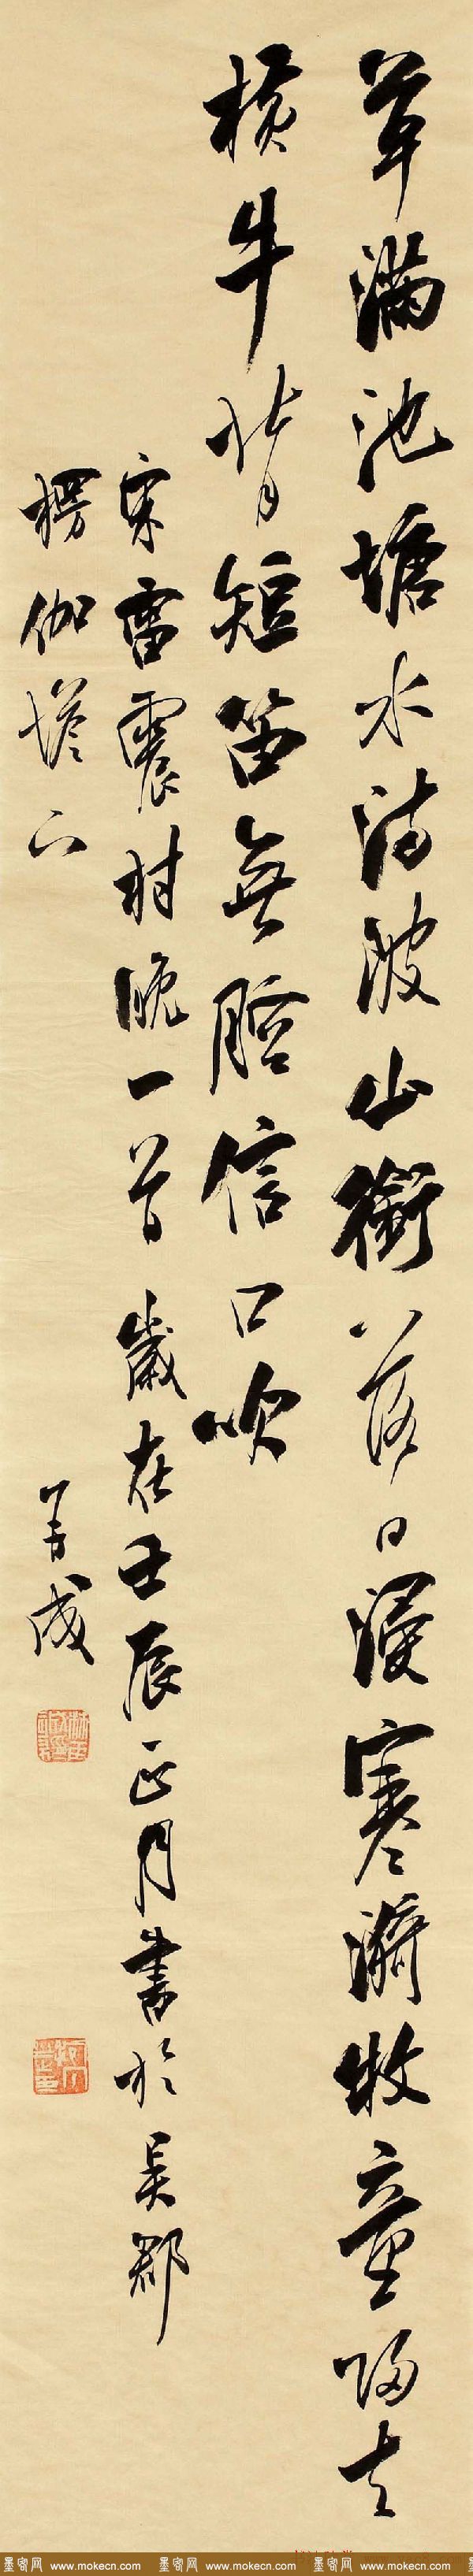 草滿池塘水滿陂山銜落日浸寒漪牧童歸去
橫牛背短笛無腔信口吹
宋雷震村晚一首 歲在壬辰正月書於吳郡
楞伽塔下
墨客网 www.mokecn.com 墨客网 www.mokecn.com 墨客网 www.mokecn.com 墨客网 www.mokecn.com